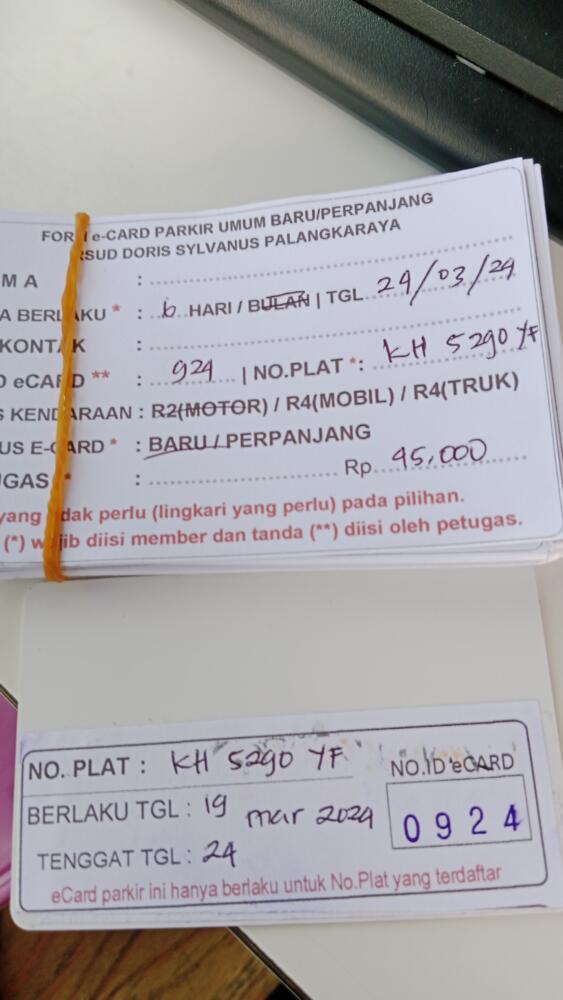 FOR e-CARD PARKIR UMUM BARU/PERPANJANG
RSUD DORIS SYLVANUS PALANGKARAYA
M A :
A BERLAKU * : 6 HARI / BULAN | TGL 24/03/24
KONTAK :
D eCARD ** : 924 | NO.PLAT *: KH 5290 YF
S KENDARAAN : R2(MOTOR) / R4(MOBIL) / R4(TRUK)
US E-CARD * : BARU / PERPANJANG
UGAS * : Rp. 45.000
yang dak perlu (lingkari yang perlu) pada pilihan.
(*) wajib diisi member dan tanda (**) diisi oleh petugas.
NO. PLAT : KH 5290 YF
NO.ID eCARD
BERLAKU TGL : 19 mar 2024
0924
TENGGAT TGL : 24
eCard parkir ini hanya berlaku untuk No.Plat yang terdaftar